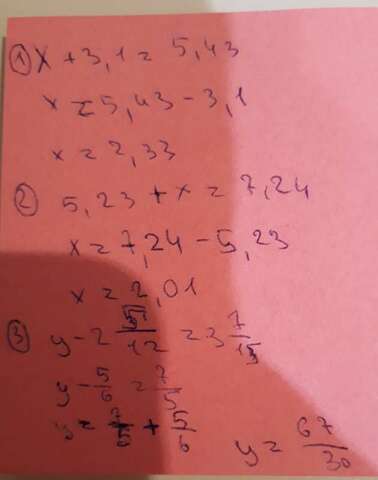 ① x + 3,1 = 5,43
x = 5,43 - 3,1
x = 2,33
② 5,23 + x = 7,24
x = 7,24 - 5,23
x = 2,01
③ y - 2 5/12 = 3 7/15
y - 5/6 = 7/5
y = 7/5 + 5/6 y = 67/30